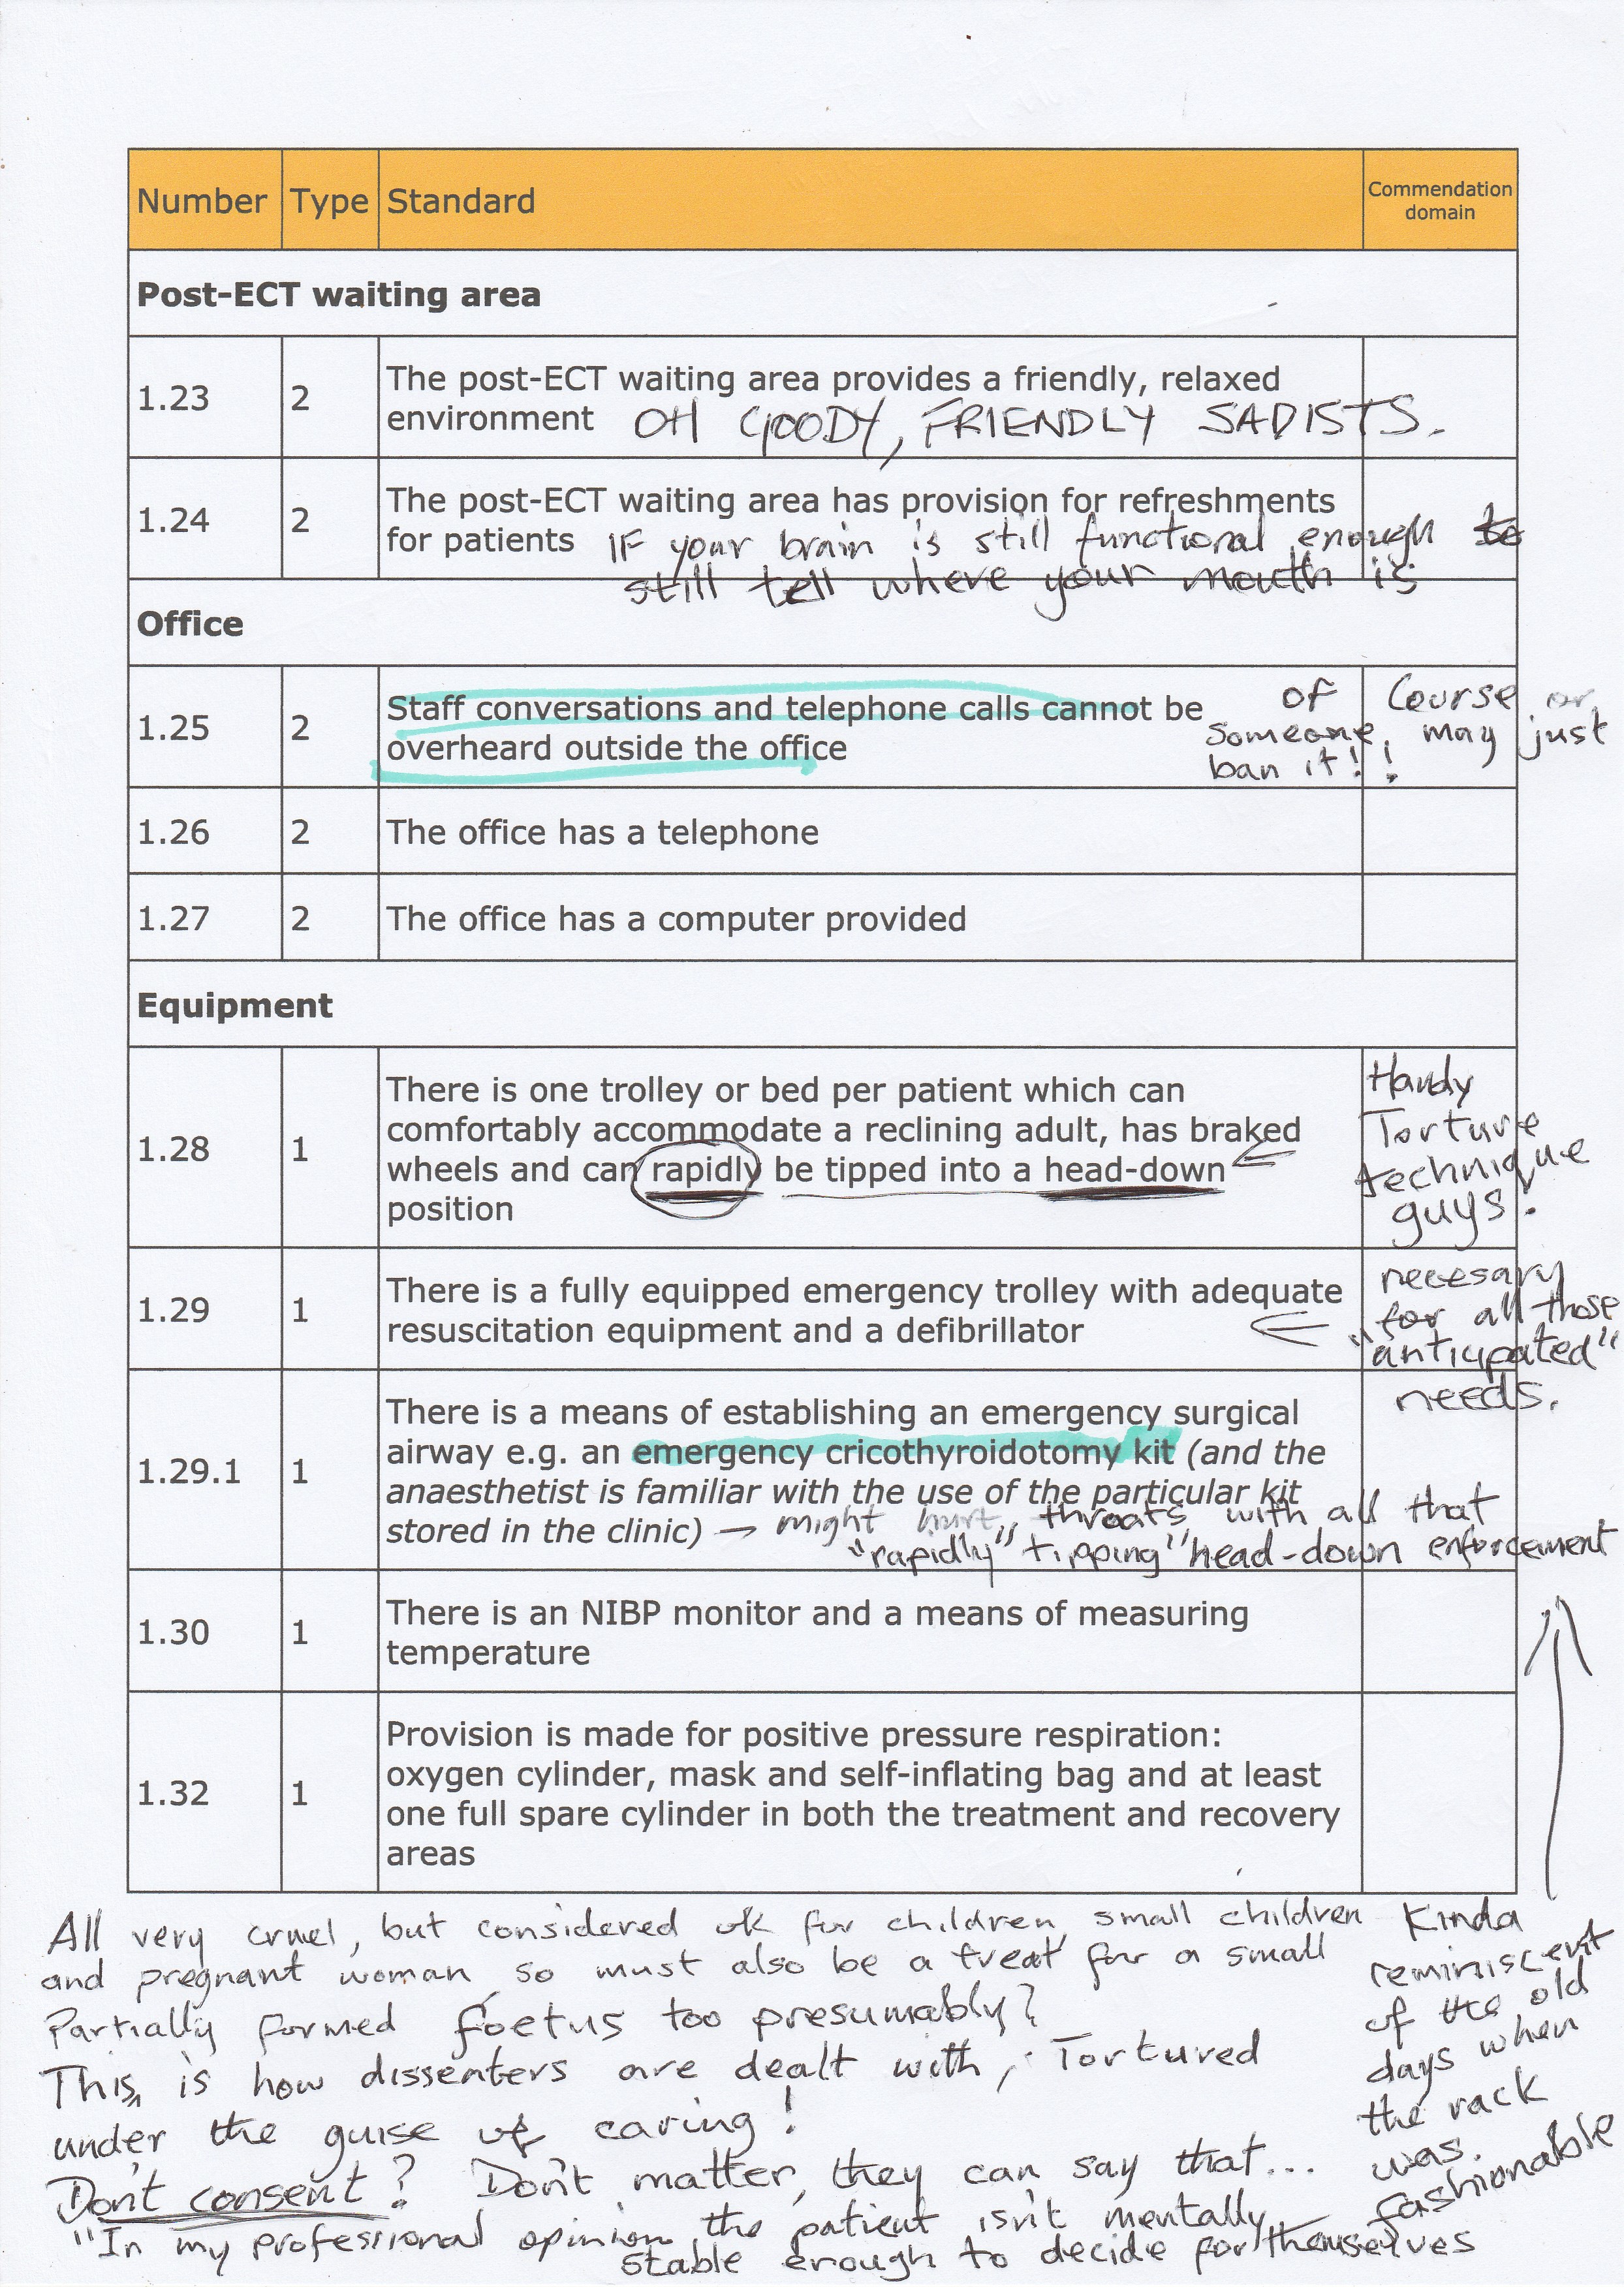 Number Type Standard Commendation
domain
Post-ECT waiting area
1.23 2 The post-ECT waiting area provides a friendly, relaxed
environment OH GOODY, FRIENDLY SADISTS.
1.24 2 The post-ECT waiting area has provision for refreshments
for patients IF your brain is still functional enough to
still tell where your mouth is
Office
1.25 2 Staff conversations and telephone calls cannot be
overheard outside the office
OF Course or
someone may just
ban it!!
1.26 2 The office has a telephone
1.27 2 The office has a computer provided
Equipment
1.28 1 There is one trolley or bed per patient which can
comfortably accommodate a reclining adult, has braked
wheels and can rapidly be tipped into a head-down
position
Handy
Torture
technique
guys.
1.29 1 There is a fully equipped emergency trolley with adequate
resuscitation equipment and a defibrillator
necesary
for all those
"anticipated"
needs.
1.29.1 1 There is a means of establishing an emergency surgical
airway e.g. an emergency cricothyroidotomy kit (and the
anaesthetist is familiar with the use of the particular kit
stored in the clinic) → might hurt throats with all that
"rapidly" tipping "head-down enforcement
1.30 1 There is an NIBP monitor and a means of measuring
temperature
1.32 1 Provision is made for positive pressure respiration:
oxygen cylinder, mask and self-inflating bag and at least
one full spare cylinder in both the treatment and recovery
areas
All very cruel, but considered ok for children, small children
and pregnant woman so must also be a treat for a small
Partially formed foetus too presumably?
This, is how dissenters are dealt with, Tortured
under the guise of caring!
Don't consent? Don't matter, they can say that...
"In my professional opinion the patient isn't mentally
stable enough to decide for themselves
Kinda
reminiscent
of the old
days when
the rack
was.
fashionable